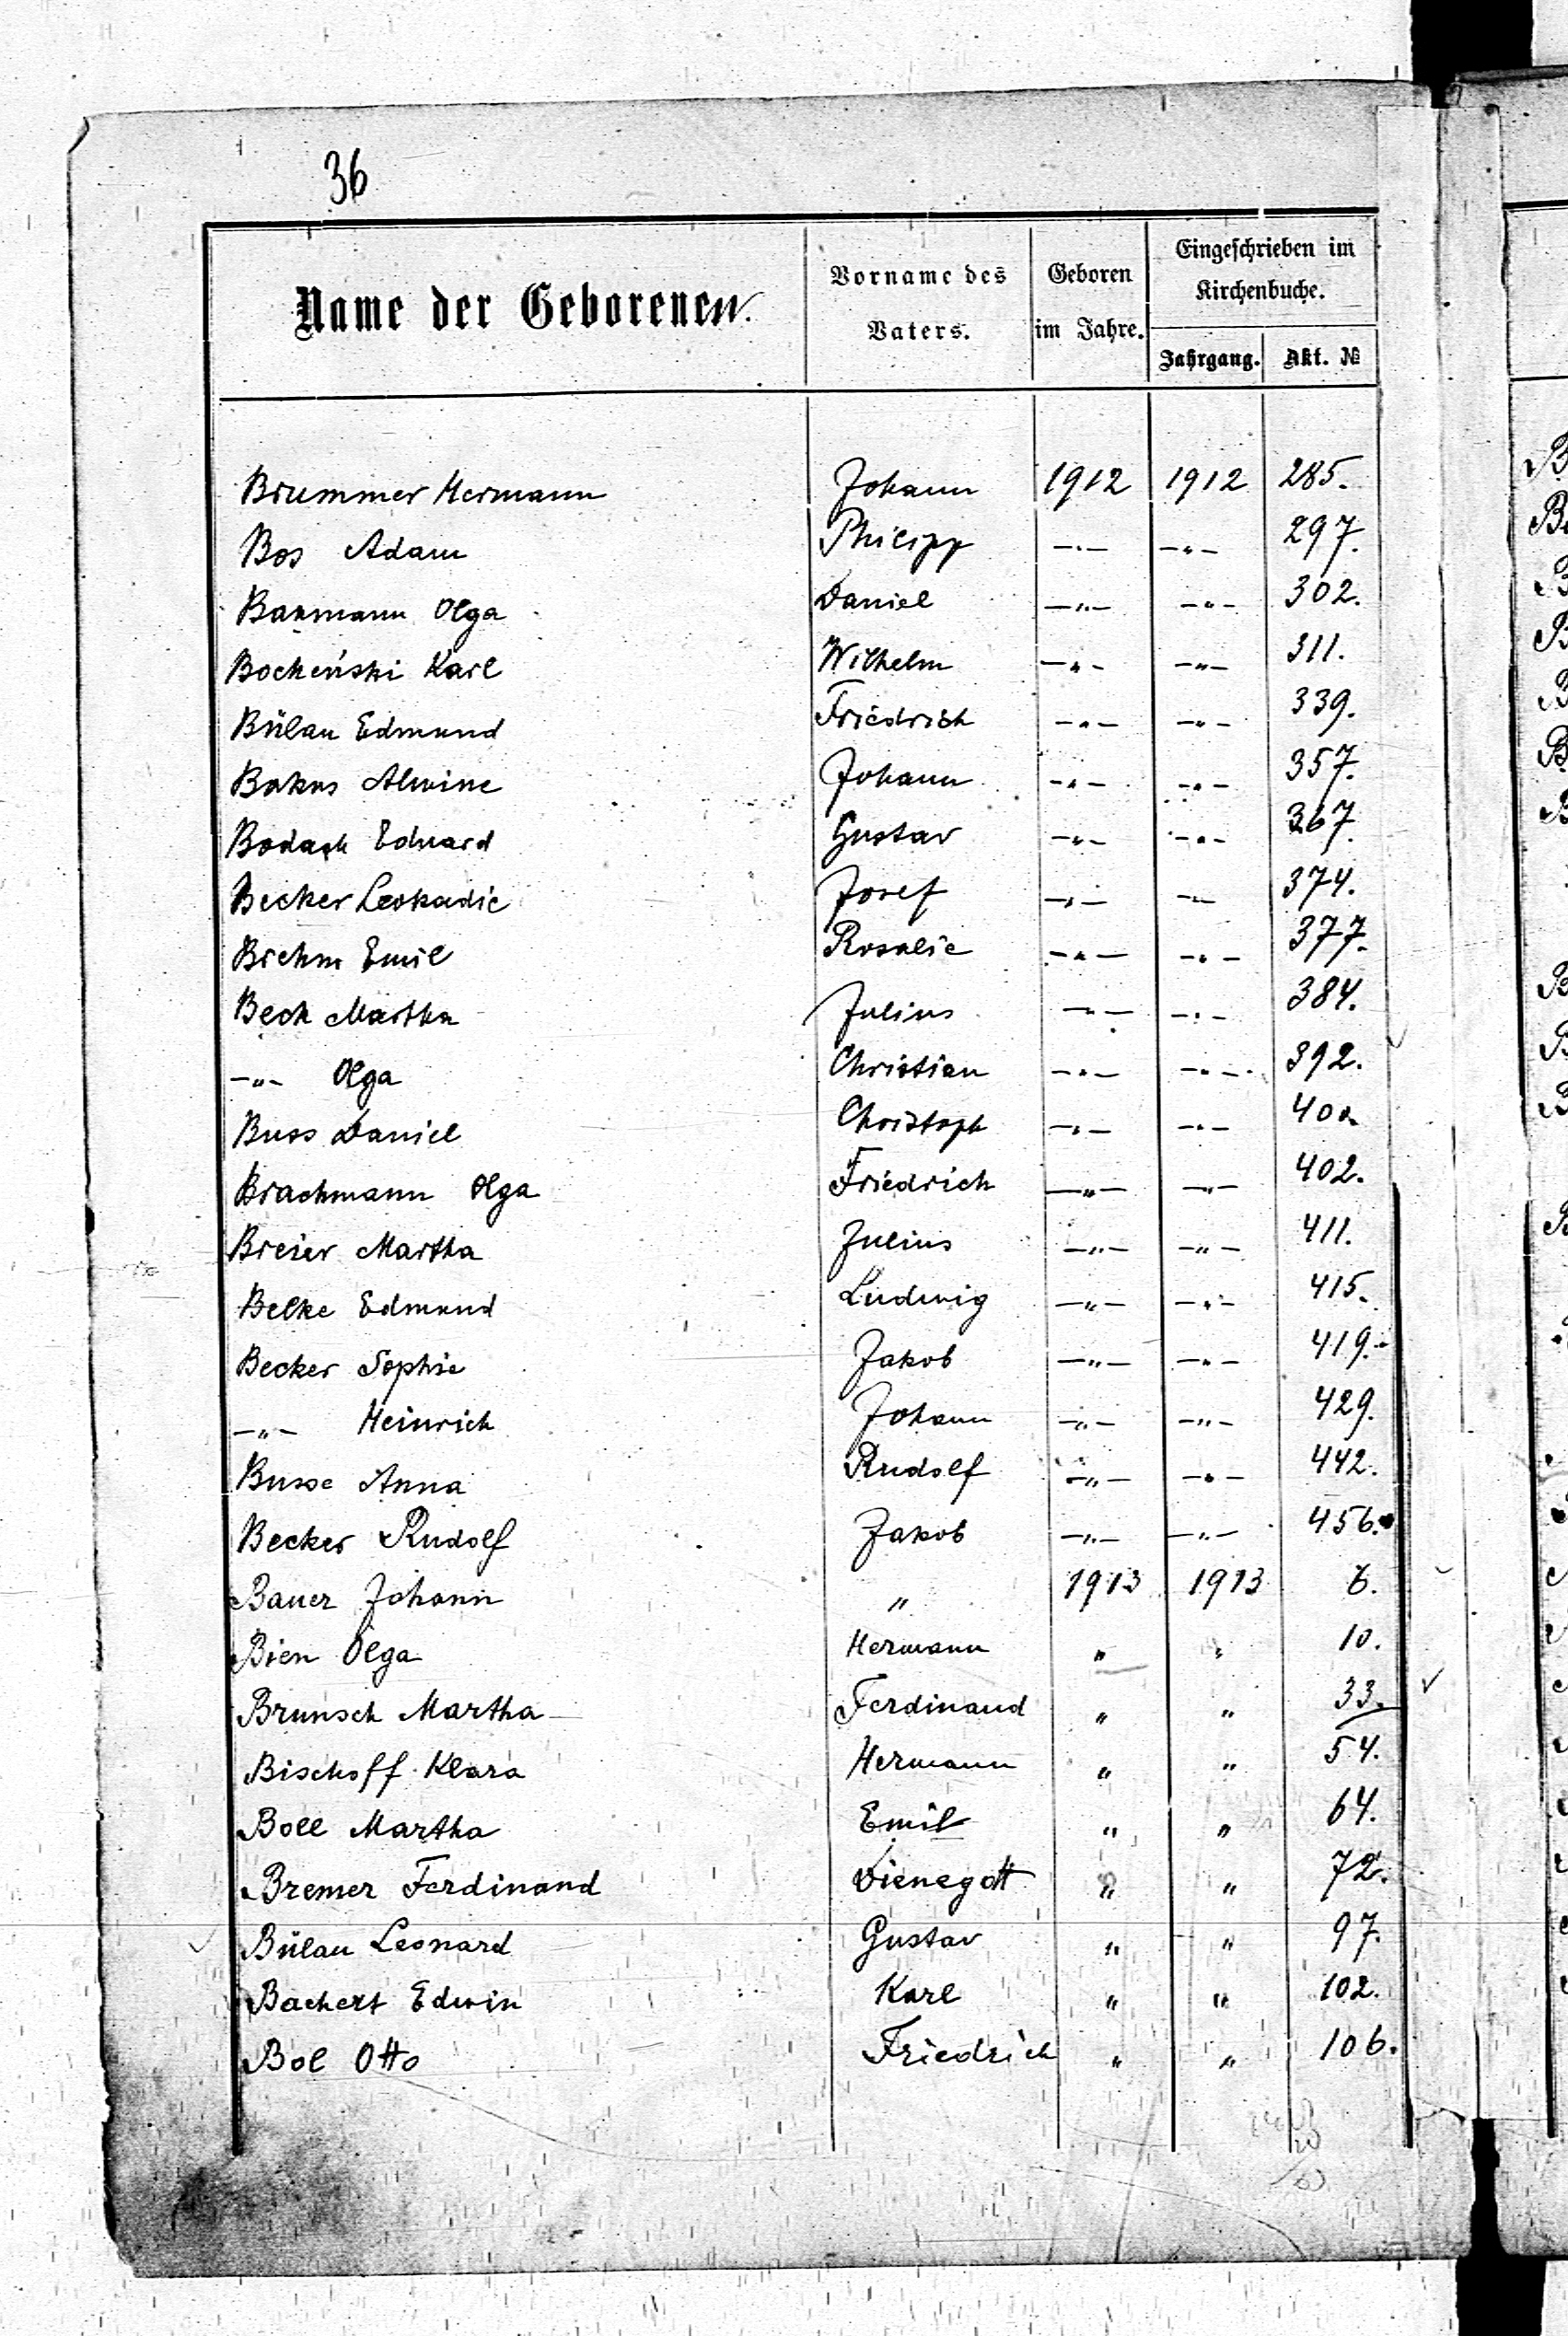 36
Name der Geborenen.
Vorname des Vaters.
Geboren im Jahre.
Eingeschrieben im Kirchenbuche.
Jahrgang. Akt. №
Brummer Hermann Johann 1912 1912 285.
Bos Adam Philipp -"- -"- 297.
Olga Daniel -"- -"- 302.
Bocheński Karl Wilhelm -"- -"- 311.
Bülau Edmund Friedrich -"- -"- 339.
Bakus Alwine Johann -"- -"- 357.
Eduard Gustav -"- -"- 367.
Becker Leokadie Josef -"- -"- 374.
Brehm Emil Rosalie -"- -"- 377.
Beck Martha Julius -"- -"- 384.
-"- Olga Christian -"- -"- 392.
Buss Daniel Christoph -"- -"-
Brachmann Olga Friedrich -"- -"- 402.
Breier Martha Julius -"- -"- 411.
Belke Edmund Ludwig -"- -"- 415.
Becker Sophie Jakob -"- -"- 419.
-"- Heinrich Johann -"- -"- 429.
Busse Anna Rudolf -"- -"- 442.
Becker Rudolf Jakob -"- -"- 456.
Bauer Johann " 1913 1913 6.
Bien Olga Hermann " " 10.
Brunsch Martha Ferdinand " " 33.
Bischoff Klara Hermann " " 54.
Boll Martha Emil " " 64.
Bremer Ferdinand Dienegott " " 72.
Bülau Leonard Gustav " " 97.
Bachert Edwin Karl " " 102.
Bol Otto Friedrich " " 106.